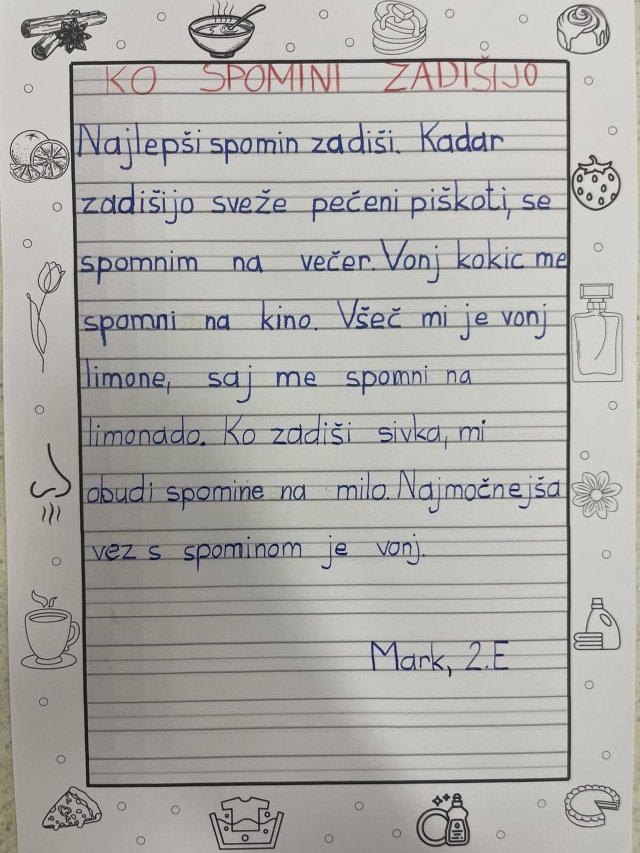 KO SPOMINI ZADIŠIJO
Najlepši spomin zadiši. Kadar
zadišijo sveže pečeni piškoti, se
spomnim na večer. Vonj kokic me
spomni na kino. Všeč mi je vonj
limone, saj me spomni na
limonado. Ko zadiši sivka, mi
obudi spomine na milo. Najmočnejša
vez s spominom je vonj.
Mark, 2.E